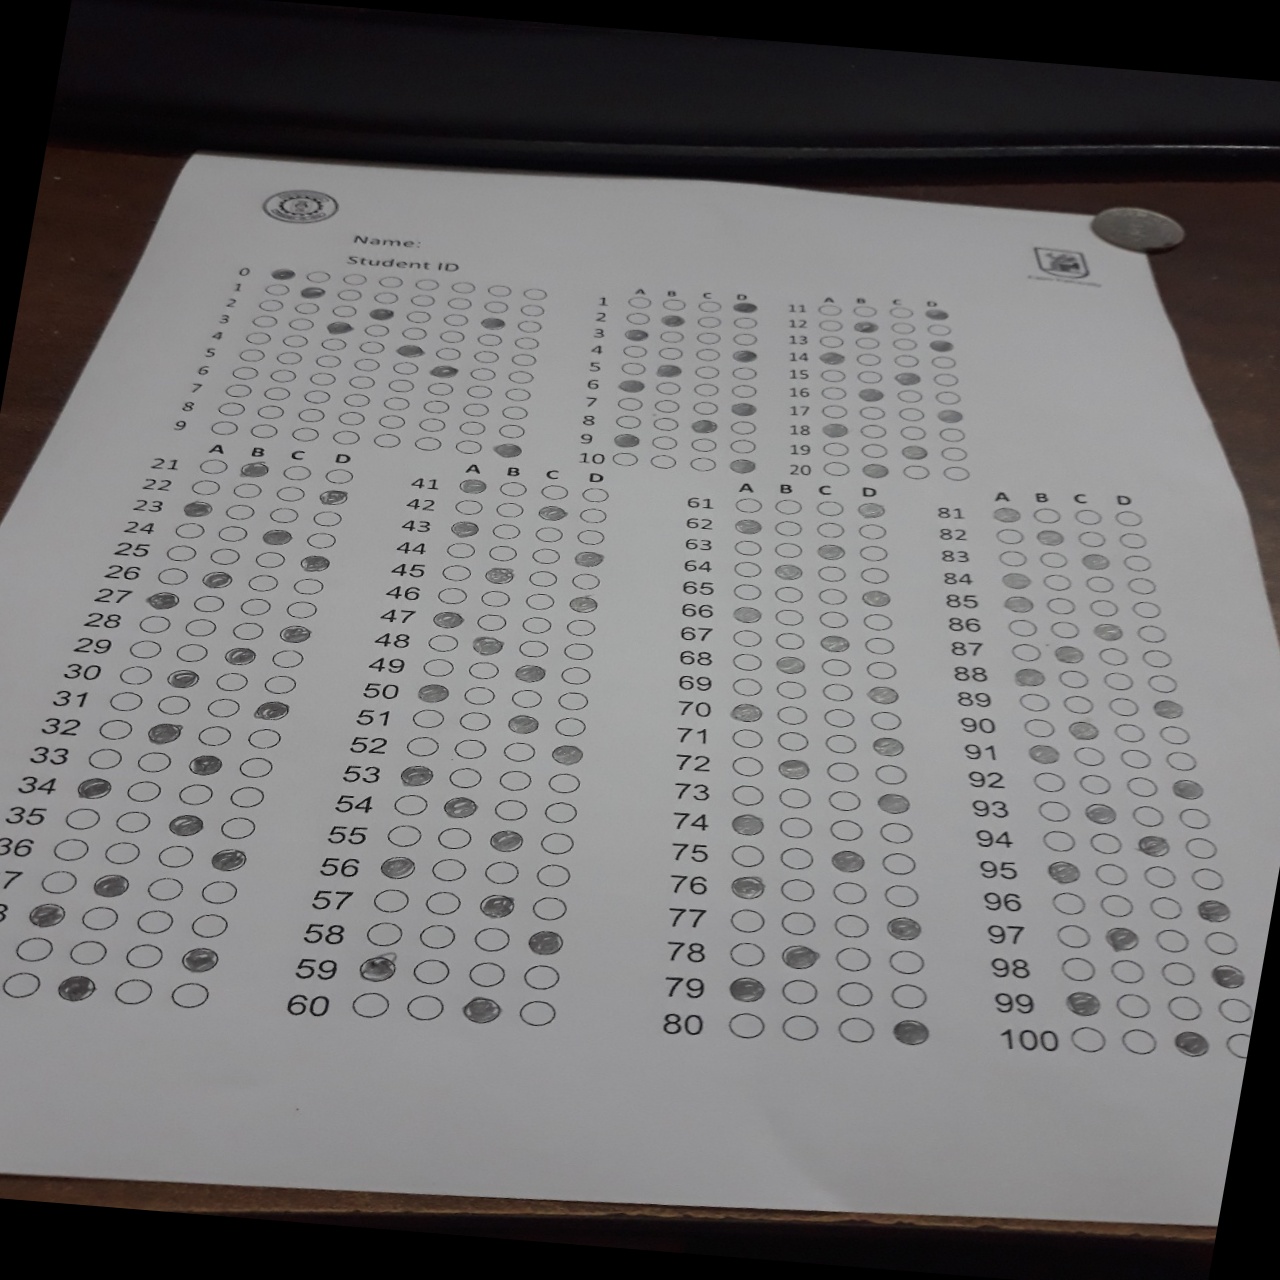 Name:
Student ID
0
1
2
3
4
5
6
7
8
9
A B C D
1
2
3
4
5
6
7
8
9
10
A B C D
11
12
13
14
15
16
17
18
19
20
A B C D
21
22
23
24
25
26
27
28
29
30
31
32
33
34
35
36
7
A B C D
41
42
43
44
45
46
47
48
49
50
51
52
53
54
55
56
57
58
59
60
A B C D
61
62
63
64
65
66
67
68
69
70
71
72
73
74
75
76
77
78
79
80
A B C D
81
82
83
84
85
86
87
88
89
90
91
92
93
94
95
96
97
98
99
100